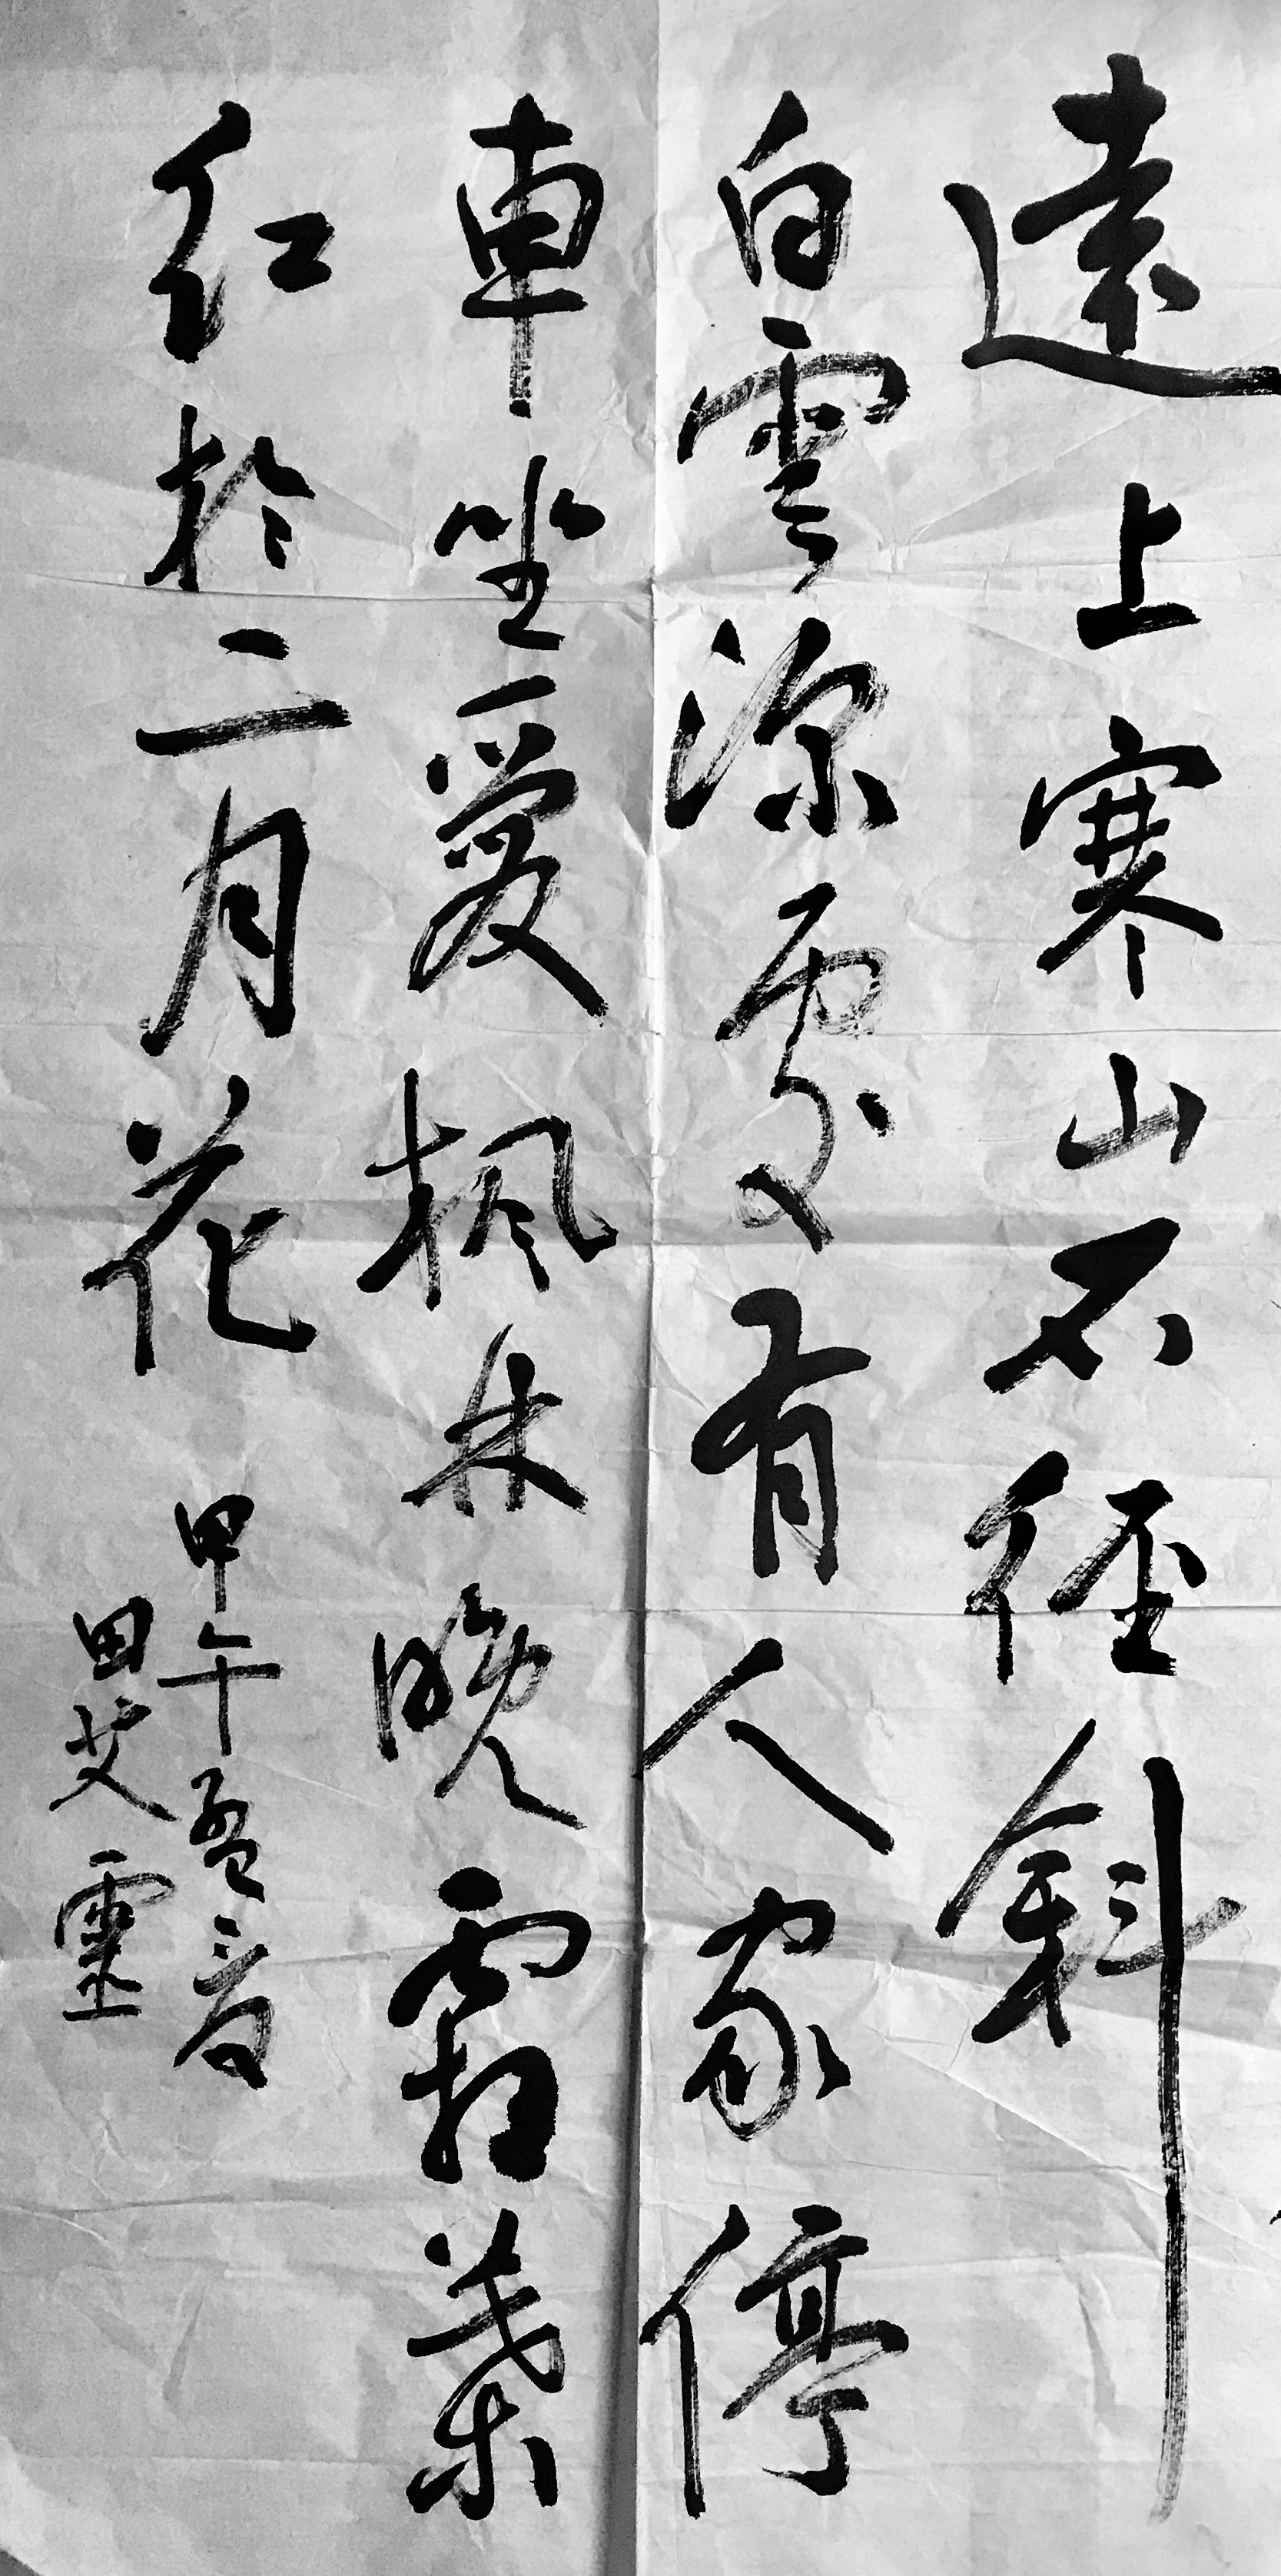 遠上寒山石徑斜
白雲深處有人家停
車坐愛楓林晚霜葉
紅於二月花
甲午孟春
田艾靈